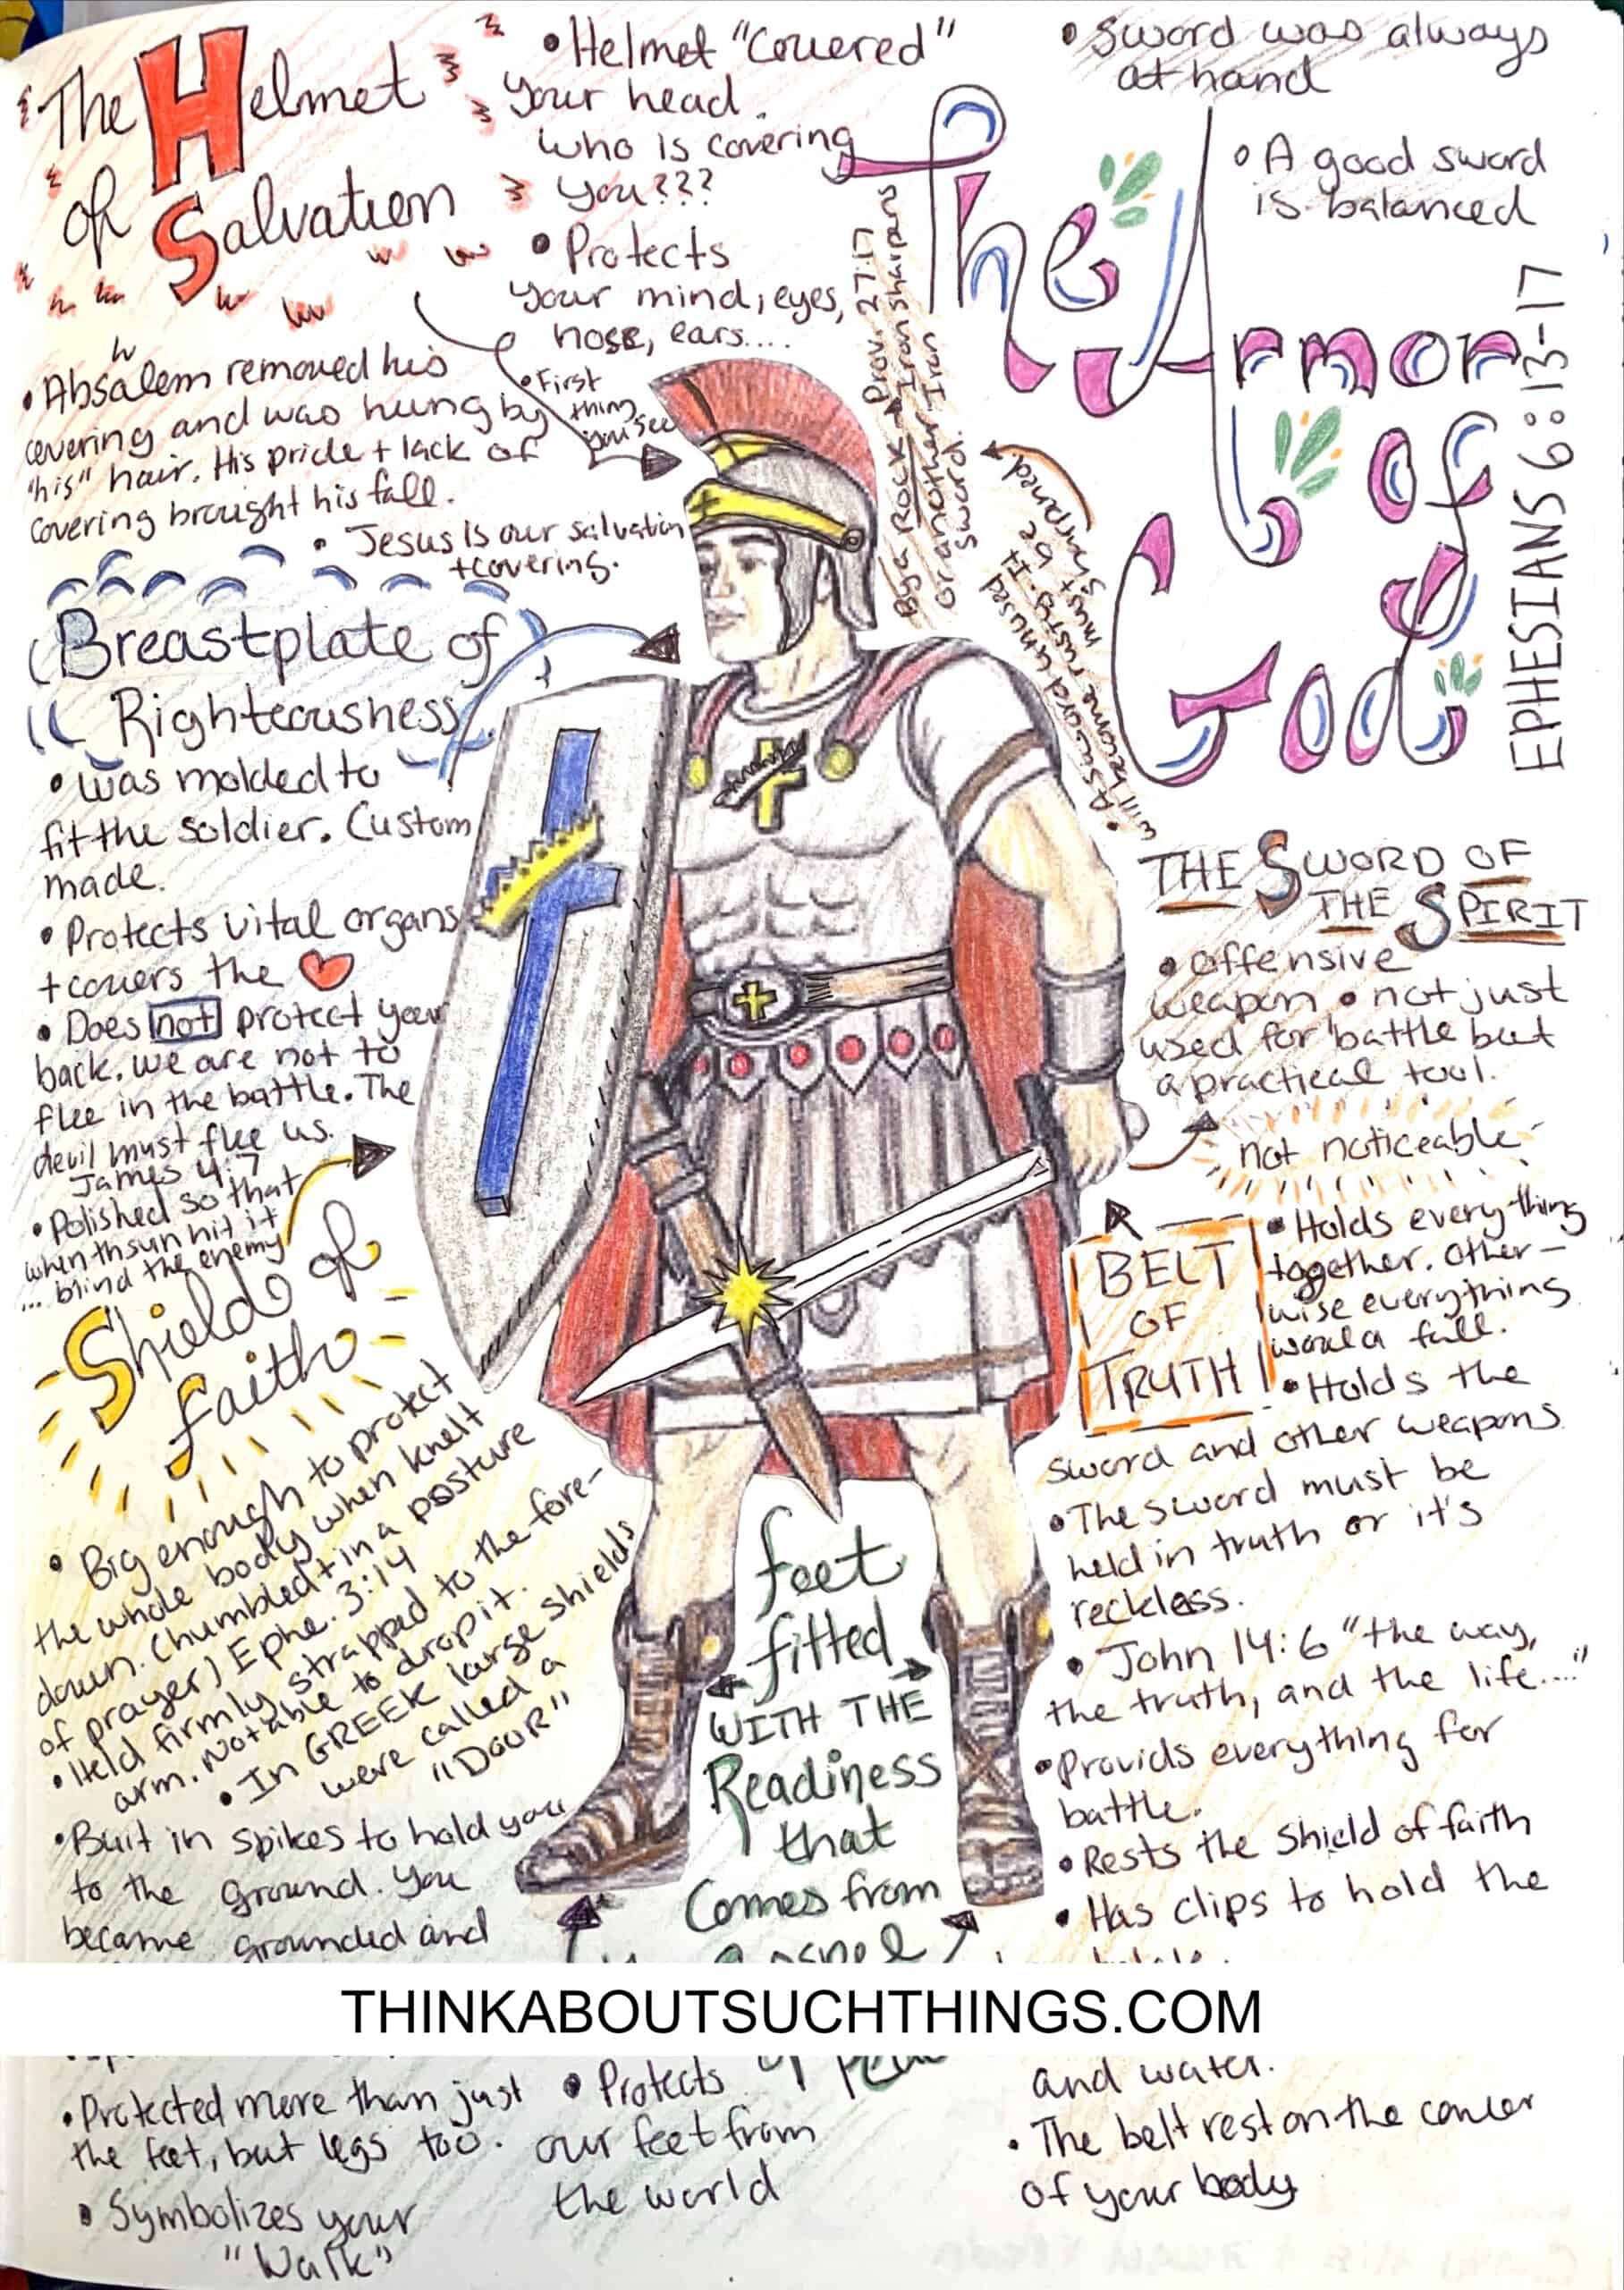 The Helmet
of Salvation
• Helmet "covered"
your head.
who is covering
you???
• Protects
your mind, eyes,
nose, ears....
• First
thing
you see
• Absalem removed his
covering and was hung by
"his" hair. His pride + lack of
covering brought his fall.
• Jesus is our salvation
+ covering.
The Armor
of
God
EPHESIANS 6:13-17
• Sword was always
at hand
• A good sword
is balanced
Prov. 27:17
By a Rock → Iron sharpens
or another Iron
sword.
• A sword unused
will become rusty. It
must be
sharpened.
Breastplate of
Righteousness
• was molded to
fit the soldier. Custom
made.
• Protects vital organs
+ covers the
• Does not protect your
back. we are not to
flee in the battle. The
devil must flee us.
James 4:7
• Polished so that
when th sun hit it
... blind the enemy
THE SWORD OF
THE SPIRIT
• offensive
weapon • not just
used for battle but
a practical tool.
not noticeable
Shield of
faith
• Big enough to protect
the whole body when knelt
down. (humbled + in a posture
of prayer) Ephe. 3:14
• Held firmly strapped to the fore-
arm. Not able to drop it.
• In GREEK large shields
were called a
"DOOR"
BELT
OF
TRUTH
• Holds everything
together. Other-
wise everything
would fall.
• Holds the
sword and other weapons
• The sword must be
held in truth or it's
reckless.
• John 14:6 "the way,
the truth, and the life...."
• Provids everything for
battle.
• Rests the Shield of faith
• Has clips to hold the
feet
fitted
WITH THE
Readiness
that
Comes from
gospel
of
• Built in spikes to hold you
to the ground. You
became grounded and
THINKABOUTSUCHTHINGS.COM
• Protected more than just
the feet, but legs too.
• Symbolizes your
"Walk"
• Protects
our feet from
the world
and water.
• The belt rest on the center
of your body